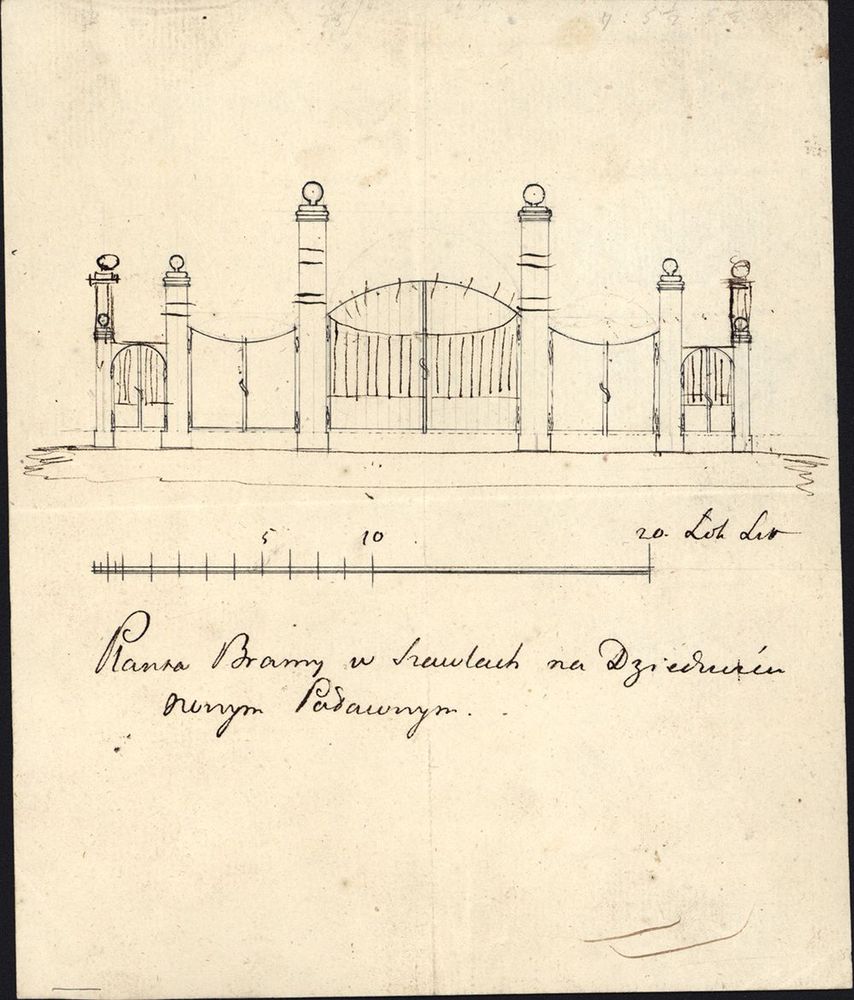 5 10 20. Łok Lit
Planta Bramy w Szawlach na Dziedzińcu
nowym Paławnym.